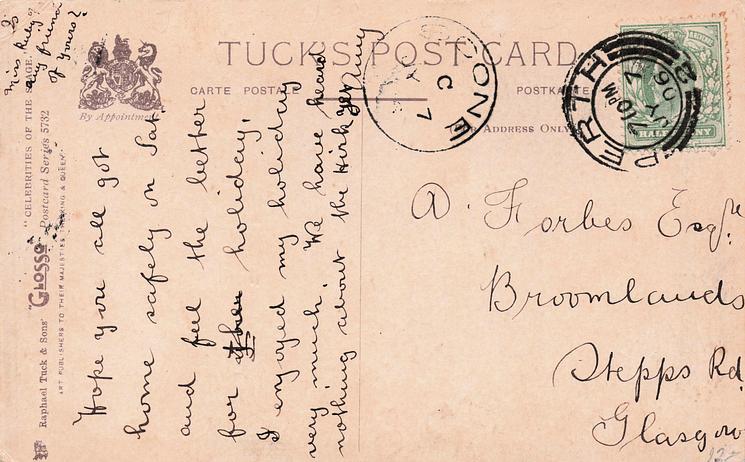 TUCK'S POST CARD
CARTE POSTALE
POSTKARTE
By Appointment
FOR ADDRESS ONLY
"CELEBRITIES OF THE STAGE."
"GLOSSO" Postcard Series 5732
Raphael Tuck & Sons'
ART PUBLISHERS TO THEIR MAJESTIES THE KING & QUEEN
PERTH
7 10 PM
JY 7
06
2
HALFPENNY
C
JY 7
Is
Miss Riley
my friend
of yours?
Hope you all got
home safely on Sat
and feel the better
for holiday.
I enjoyed my holiday
very much. We have heard
nothing about the Kirk yet
A. Forbes Esqre
Broomlands
Stepps Rd
Glasgow